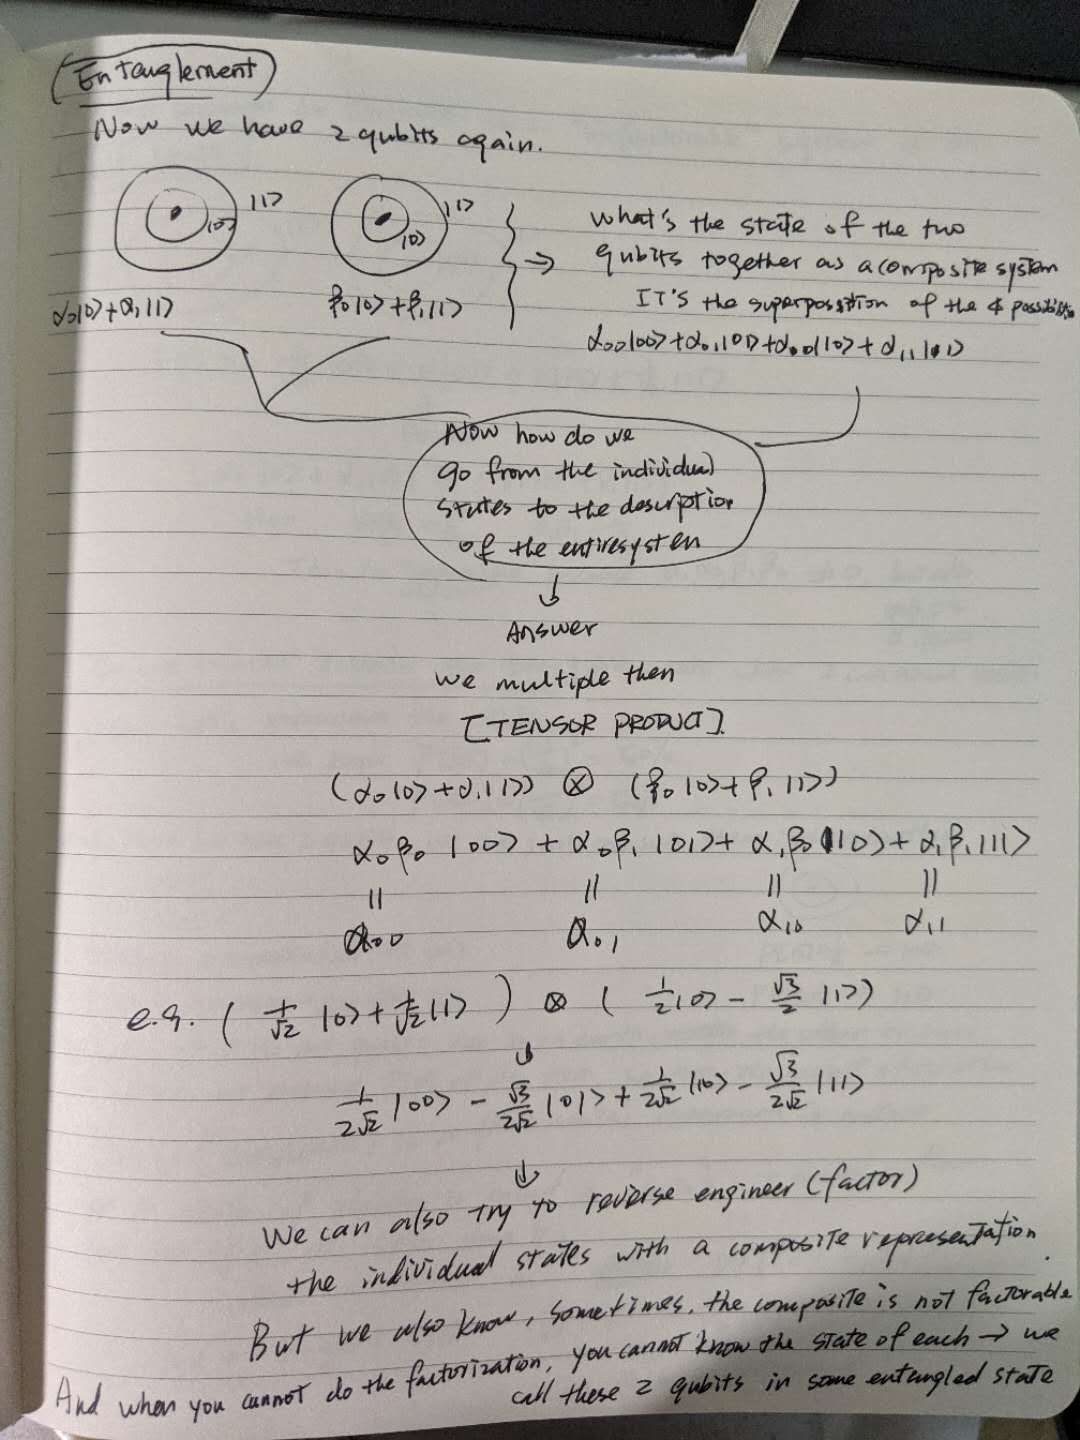 Entanglement
Now we have 2 qubits again.
|0> |1> |0> |1>
α₀|0> + α₁|1> β₀|0> + β₁|1>
what's the state of the two
qubits together as a composite system
IT's the superposition of the 4
α₀₀|00> + α₀₁|01> + α₀₀|10> + α₁₁|01>
Now how do we
go from the individual
states to the description
of the entire system
↓
Answer
we multiple then
[TENSOR PRODUCT]
(α₀|0> + α₁|1>) ⊗ (β₀|0> + β₁|1>)
α₀β₀ |00> + α₀β₁ |01> + α₁β₀ |10> + α₁β₁|11>
|| || || ||
α₀₀ α₀₁ α₁₀ α₁₁
e.g. ( 1/√2 |0> + 1/√2 |1> ) ⊗ ( 1/2 |0> - √3/2 |1> )
↓
1/2√2 |00> - √3/2√2 |01> + 1/2√2 |10> - √3/2√2 |11>
↓
We can also try to reverse engineer (factor)
the individual states with a composite representation.
But we also know, sometimes, the composite is not factorable
And when you cannot do the factorization, you cannot know the state of each → we
call these 2 qubits in some entangled state